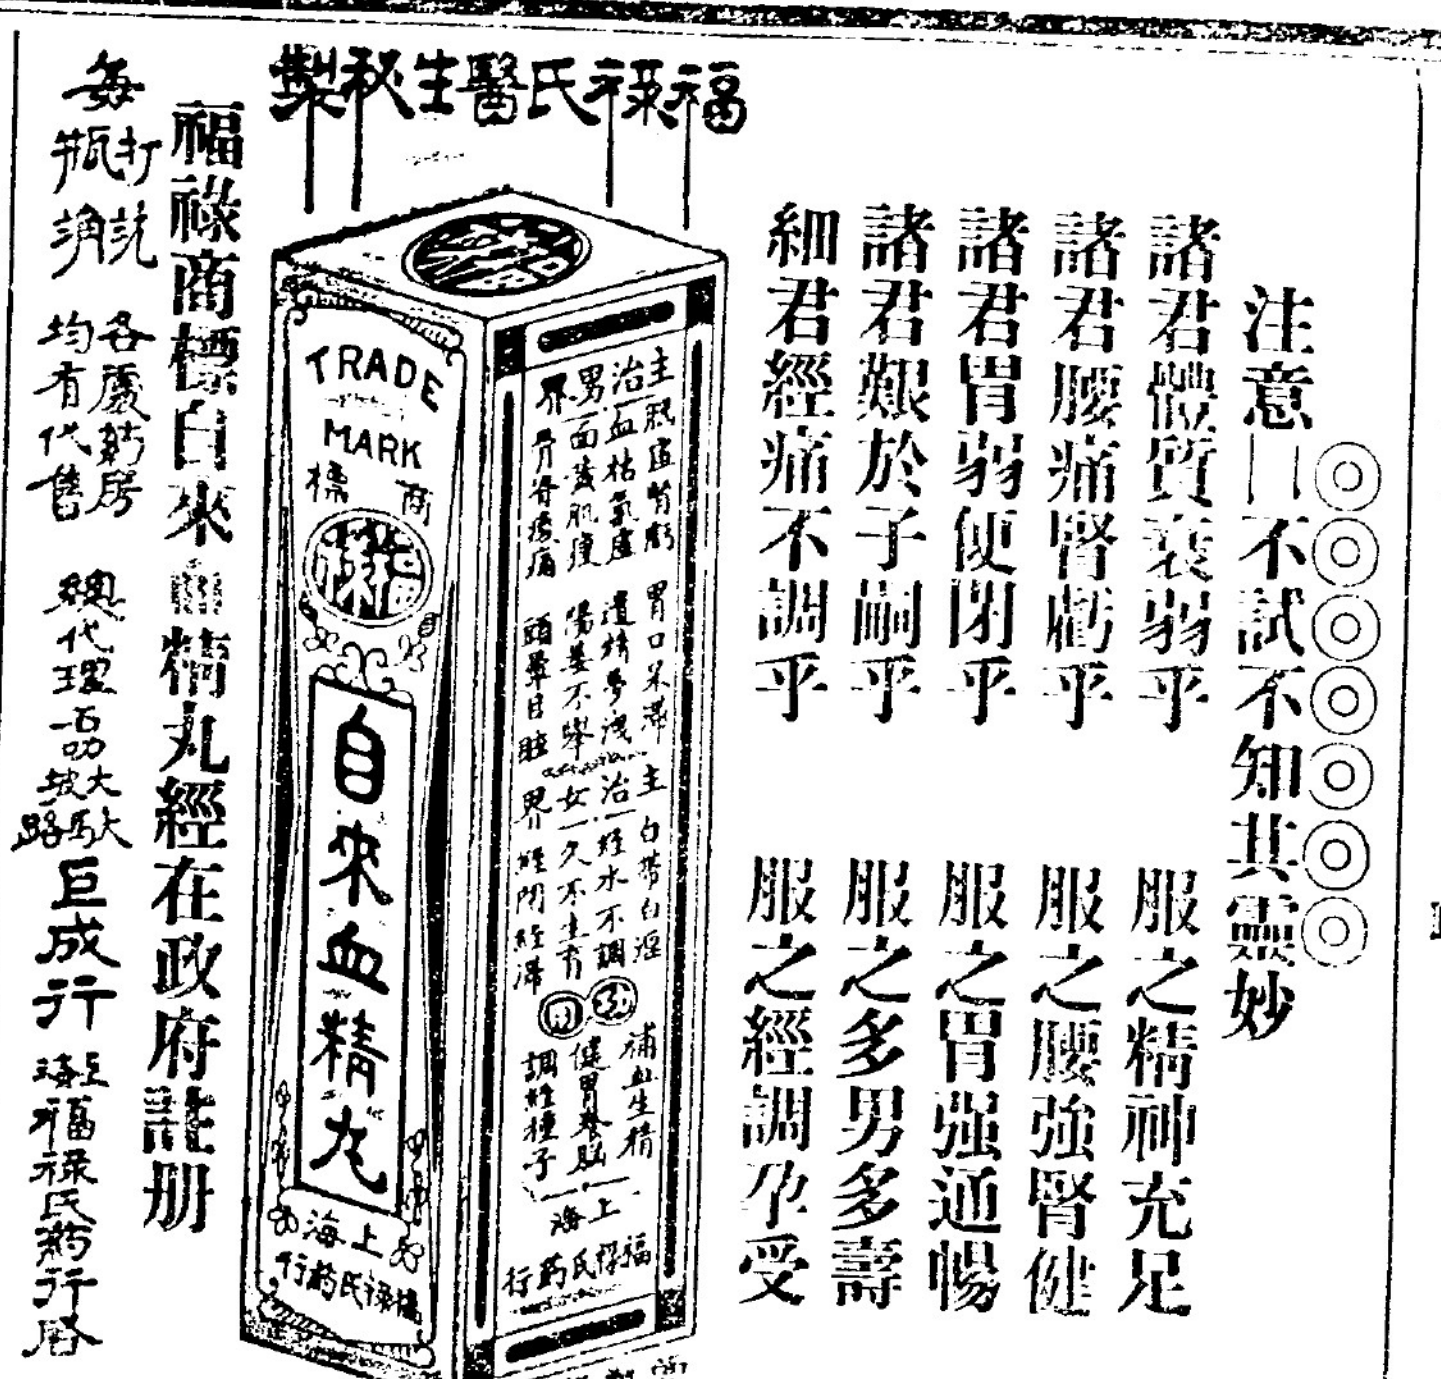 注意——不試不知其靈妙
諸君體質衰弱乎 服之精神充足
諸君腰痛腎虧乎 服之腰強腎健
諸君胃弱便閉乎 服之胃强通暢
諸君艱於子嗣乎 服之多男多壽
細君經痛不調乎 服之經調孕受
福祿氏醫生秘製
TRADE
MARK
商標
福祿
自來血精丸
上海
福祿氏药行
主治男界
血枯氣虛
面黃肌瘦
骨脊痠痛
胃口呆滯
遺精夢洩
陽萎不舉
頭暈目眩
主治女界
白帶白淫
經水不調
久不生育
經閉經滯
補血生精
健胃養腦
調經種子
上海
福祿氏药行
福祿商標自來血精丸經在政府註册
每打
瓶
各處药房
均有代售
總代理
大馱
坡路
巨成行
福祿氏药行